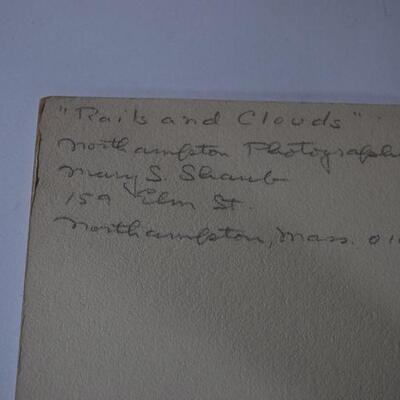 "Rails and Clouds"
Northampton Photographi
Mary S. Shaub
159 Elm St.
Northampton, Mass. 01